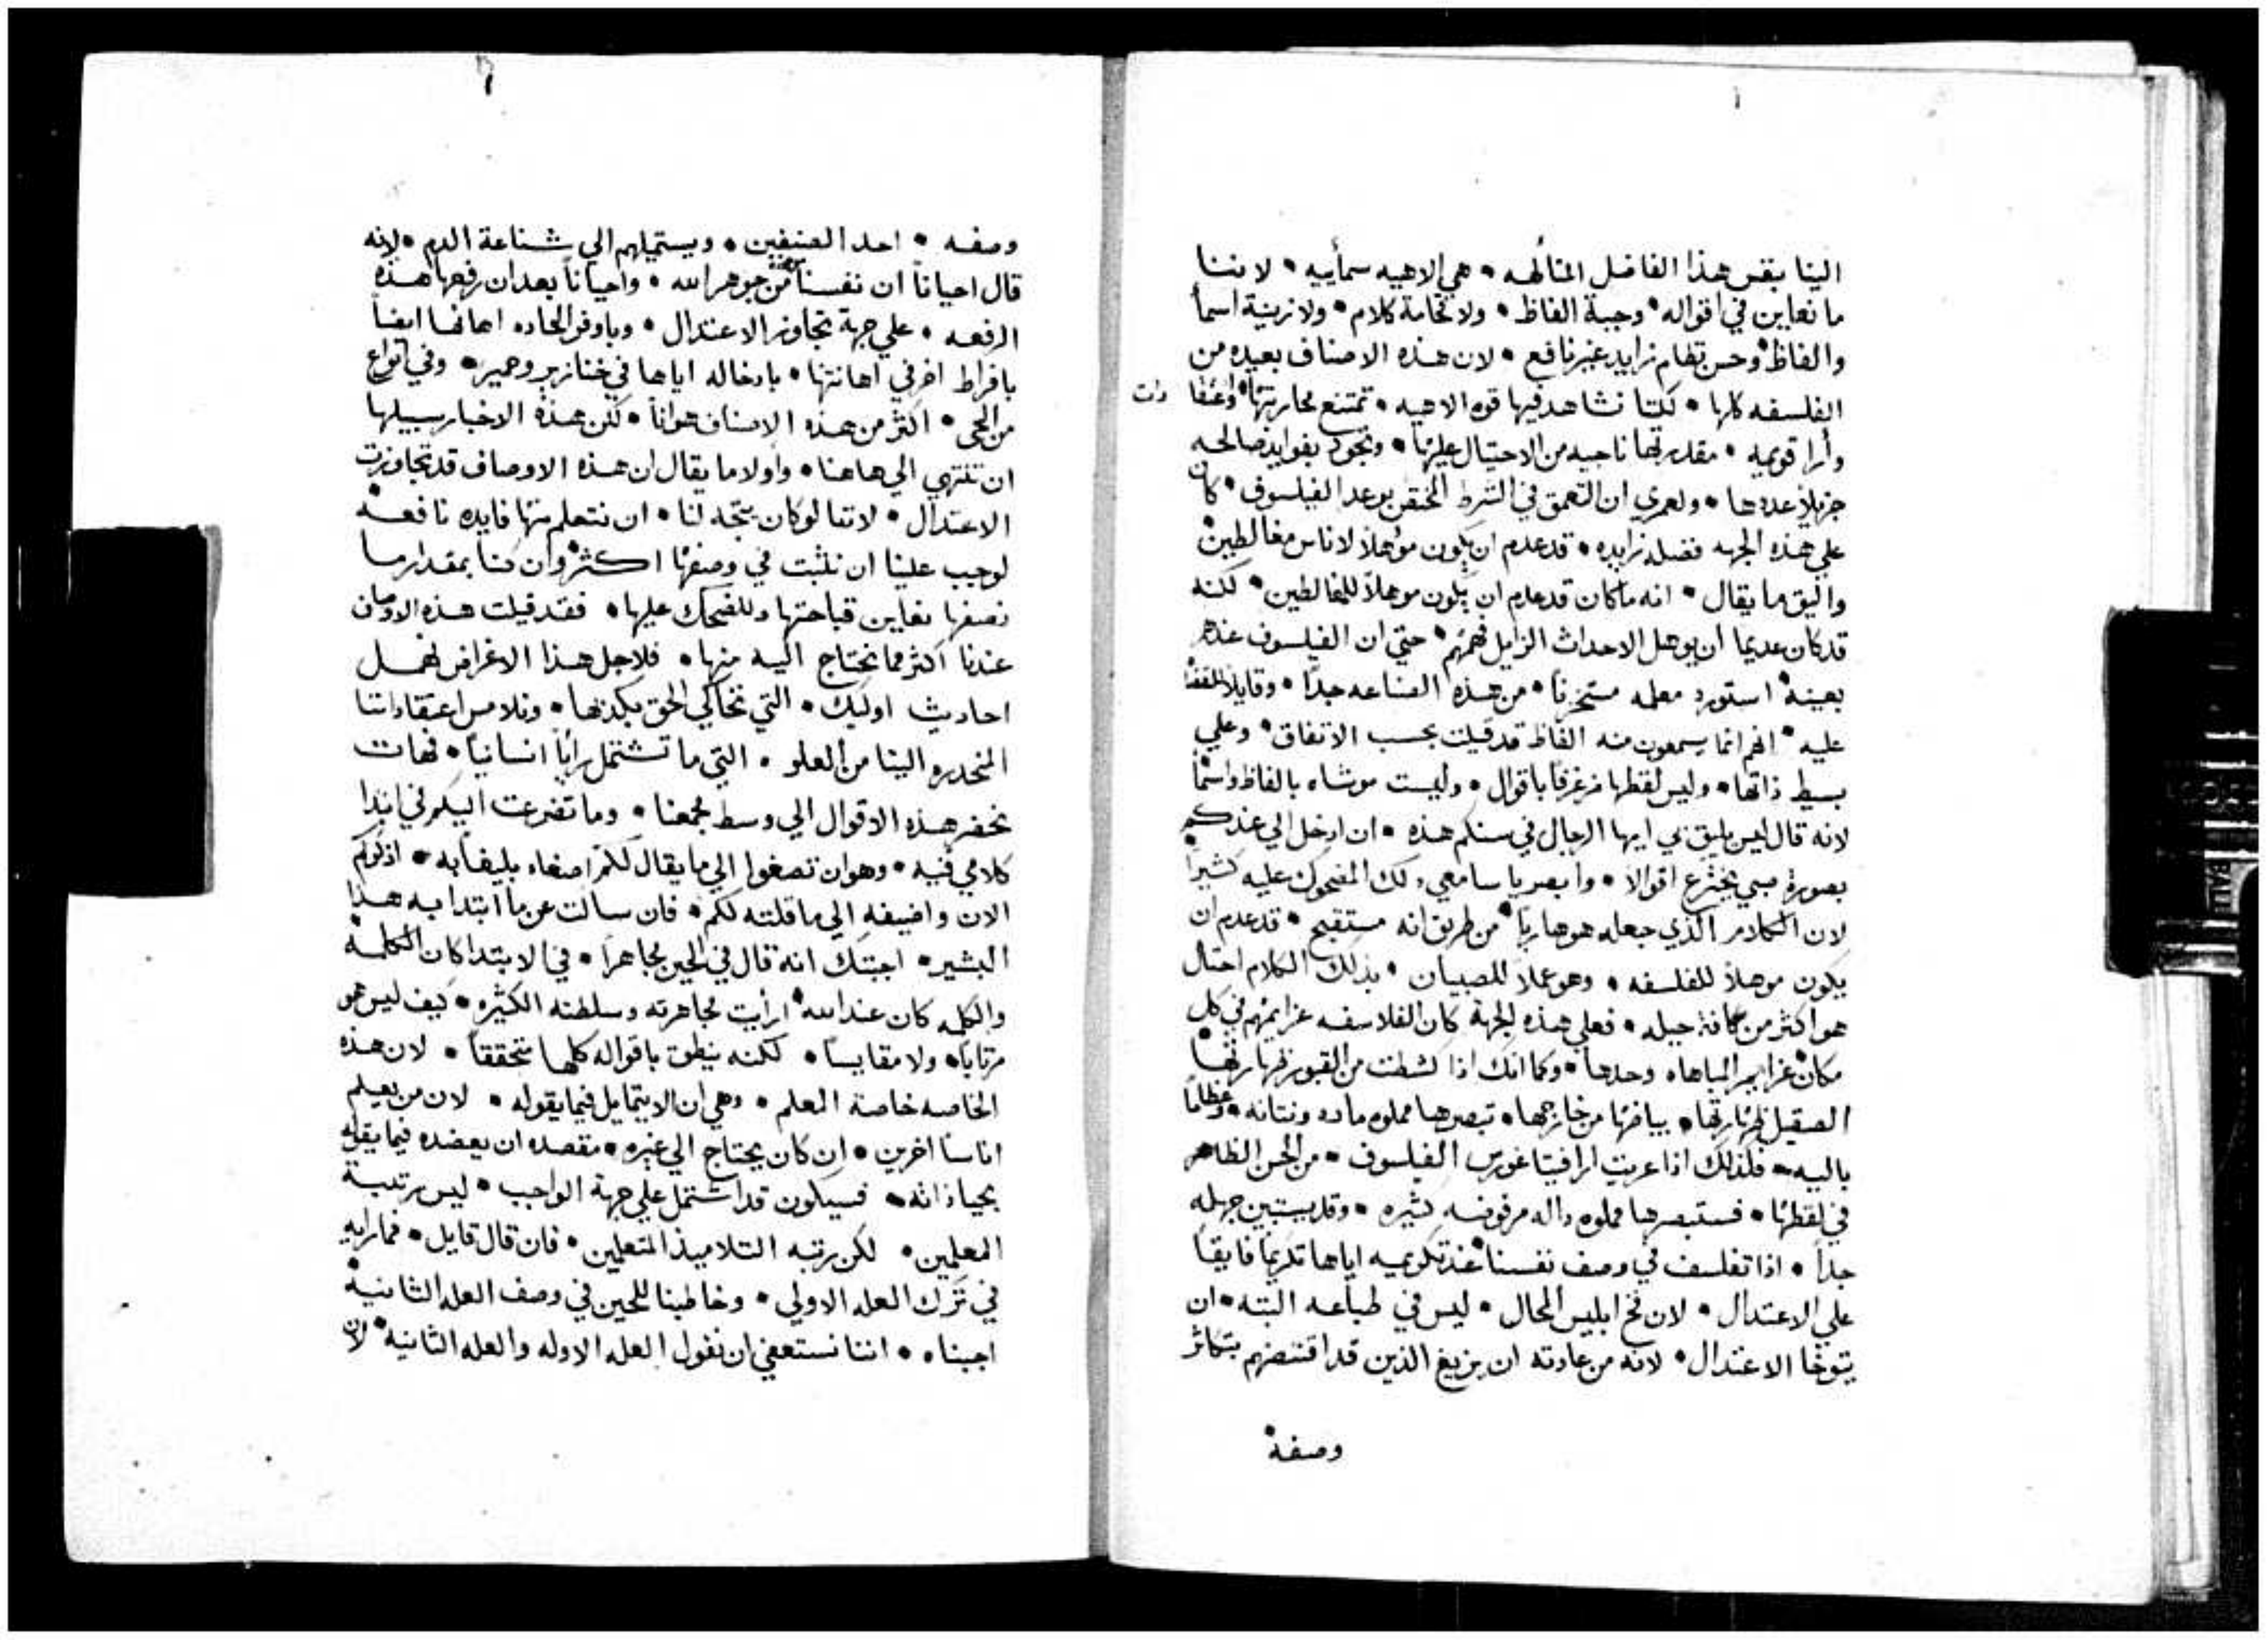 الينا بقس هذا الفاضل المتأله • هي الاهيه سمأييه • لاننا
ما نعاين في اقواله • وجبة الفاظ • ولا فخامة كلام • ولا زينية اسما
والفاظ • وحسن نظام زايد غير نافع • لان هذه الاصناف بعيده من
الفلسفه كلها • لكننا نشاهد فيها قوه الاهيه • تمتنع محاربتها • واعتقا دات
وأرا قويمه • مقدرتها ناجيه من الاحتيال عليها • وتجود بفوايد صالحه
جزيلاً عددها • ولعمري ان التعمق في الشرط المختص بوعد الفيلسوف • كان
علي هذه الجهه فضله زايده • قد عدم ان يكون موهلاً لاناس مغالطين
واليق ما يقال • انه ما كان قد عدم ان يكون موهلاً للمغالطين • لكنه
قد كان عديما ان يوهل الاحداث الزايل فهمهم • حتي ان الفيلسوف عندهم
بعينه • استورد معلمه مستخزياً • من هذه الصناعه جداً • وقايلاً للقضا
عليه • انهم انما يسمعون منه الفاظ قد قيلت بحسب الاتفاق • وعلي
بسيط ذاتها • وليس لفظها مزغرفاً باقوال • وليست موشاه بالفاظ واسماً
لانه قال ليس يليق بي ايها الرجال في سنكم هذه • ان ادخل الي عندكم
بصورة صبي يخترع اقوالاً • وابصر يا سامعي ذلك المضحوك عليه كثيراً
لان الكلام الذي جعله هو هارباً • من طريق انه مستقبح • قد عدم ان
يكون موهلاً للفلسفه • وهو عملاً للصبيان • بذلك الكلام احتال
هو اكثر من كافة حيله • فعلي هذه الجهة كان الفلاسفه عزايمهم في كل
مكان عزايم المباهاه وحدها • وكما انك اذا كشطت من القبور ظهارتها
الصقيل ظهارتها • بياضها من خارجها • تبصرها مملوه ماده ونتانه • وعظاماً
باليه • فلذلك اذا عريت ارا فيتاغورس الفيلسوف • من الحسن الظاهر
في لفظها • فستبصرها مملوه داله مرفوضه كثيره • وقد يستبين جهله
جداً • اذا تفلسف في وصف نفسنا • عند تكريميه اياها تكريماً فايقاً
علي الاعتدال • لان فخ ابليس المحال • ليس في طباعه البته • ان
يتوخا الاعتدال • لانه من عادته ان يزيغ الذين قد اقتنصهم بتكاثر
وصفه
وصفه • احد الصنفين • ويستميلهم الي شناعة الدم • لانه
قال احياناً ان نفسنا من جوهر الله • واحياناً بعد ان رفعها هذه
الرفعه • علي جهة تجاوز الاعتدال • وباوفر الحاده اهانها ايضاً
بافراط اخر في اهانتها • بادخاله اياها في خنازير وحمير • وفي انواع
من الحي • اكثر من هذه الاصناف هواناً • لكن هذه الاخبار سبيلها
ان تنتهي الي هاهنا • واولا ما يقال ان هذه الاوصاف قد تجاوزت
الاعتدال • لاننا لو كان يتجه لنا • ان نتعلم منها فايده نافعه
لوجب علينا ان نلبث في وصفها اكثر • وان كنا بمقدار ما
نصفها نعاين قباحتها وللضحك عليها • فقد قيلت هذه الاوصاف
عندنا اكثر مما نحتاج اليه منها • فلاجل هذا الاغراض نهمل
احاديث اوليك • التي تحاكي الحق بكذبها • ونلامس اعتقاداتنا
المنحدره الينا من العلو • التي ما تشتمل راياً انسانياً • فهات
نحضر هذه الاقوال الي وسط مجمعنا • وما تضرعت اليكم في ابتدا
كلامي فيه • وهو ان تصغوا الي ما يقال لكم اصغاء بليغاً به • اذكركم
الان واضيفه الي ما قلته لكم • فان سالت عن ما ابتدا به هذا
البشير • اجبتك انه قال في الحين مجاهراً • في الابتدا كان الكلمه
والكلمه كان عند الله • ارأيت مجاهرته وسلطنته الكثيره • كيف ليس هو
مرتاباً • ولا مقايساً • لكنه ينطق باقواله كلها متحققاً • لان هذه
الخاصه خاصة المعلم • وهي ان لا يتمايل فيما يقوله • لان من يعلم
اناساً اخرين • ان كان يحتاج الي غيره • مقصده ان يعضده فيما يقوله
بحيا ذاته • فسيكون قد اشتمل علي جهة الواجب • ليس مرتبة
المعلمين • لكن رتبه التلاميذ المتعلمين • فان قال قايل • فما رايه
في ترك العله الاولي • وخاطبنا للحين في وصف العله الثانيه
اجبناه • اننا نستعفي ان نقول العله الاوله والعله الثانيه • لان